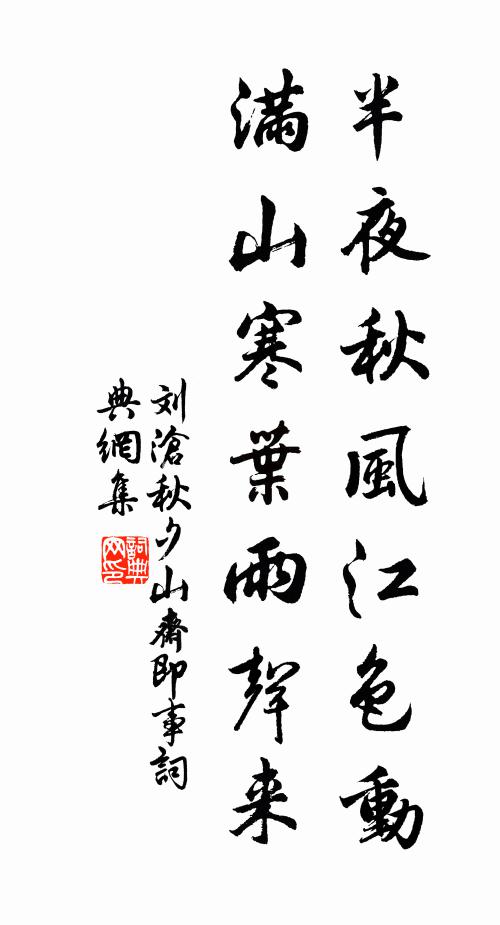 半夜秋風江色動
滿山寒葉雨聲来
刘滄秋夕山齋即事詞
典網集
詞典網印